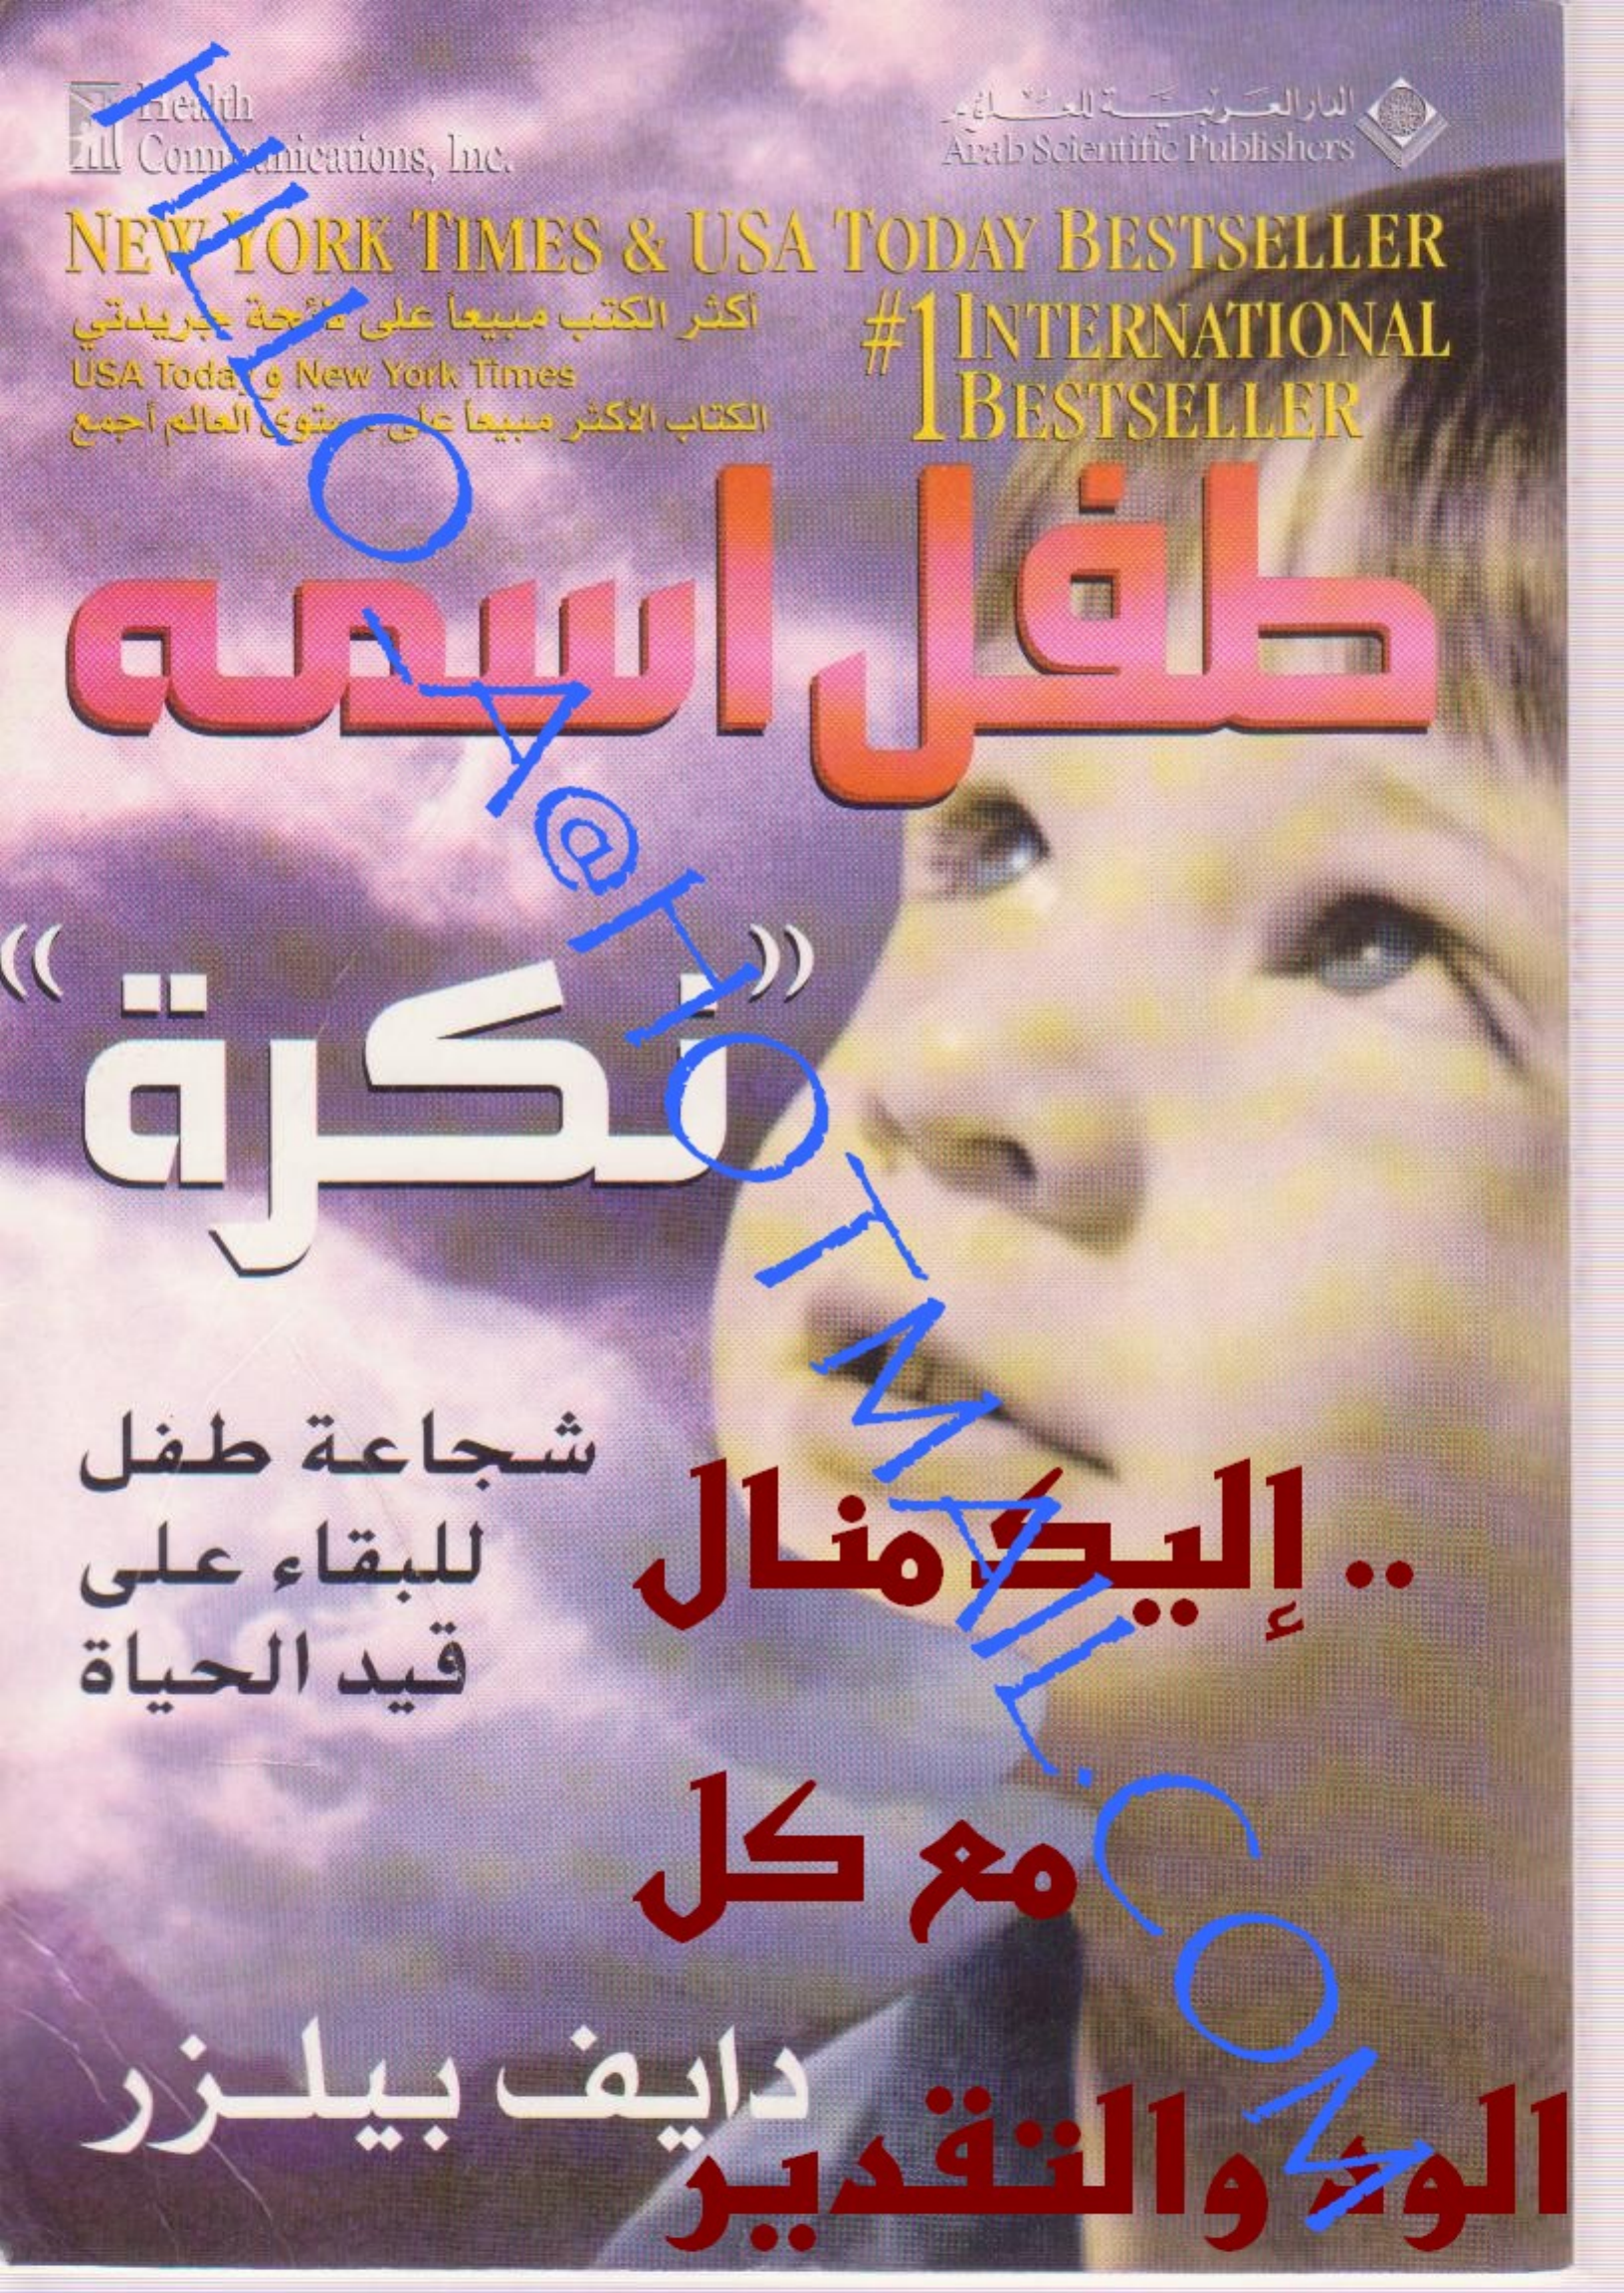 Health
Communications, Inc.
الدار العربية للعلوم
Arab Scientific Publishers
NEW YORK TIMES & USA TODAY BESTSELLER
#1 INTERNATIONAL
BESTSELLER
أكثر الكتب مبيعاً على لائحة جريدتي
USA Today و New York Times
الكتاب الأكثر مبيعاً على مستوى العالم أجمع
طفل اسمه
«نكرة»
شجاعة طفل
للبقاء على
قيد الحياة
.. إليك منال
مع كل
الود والتقدير
دايف بيلزر
HLLLO_A@HOTMAIL.COM